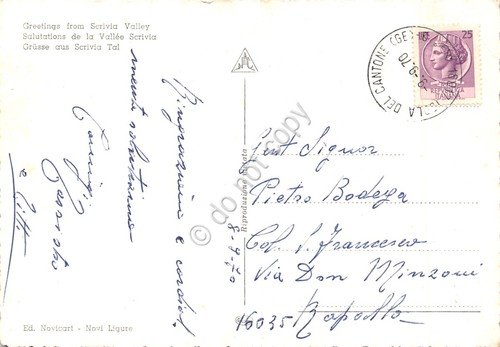 Greetings from Scrivia Valley
Salutations de la Vallée Scrivia
Grüsse aus Scrivia Tal
8-9-70
Ringraziamo e cordial
mente salutiamo
Ed. Novicart - Novi Ligure
Riproduzione vietata
do not copy
25
ISOLA DEL CANTONE (GE)
9.70
Gent Signor
Pietro Bodega
Col. S. Francesco
Via Don Minzoni
16035 Rapallo